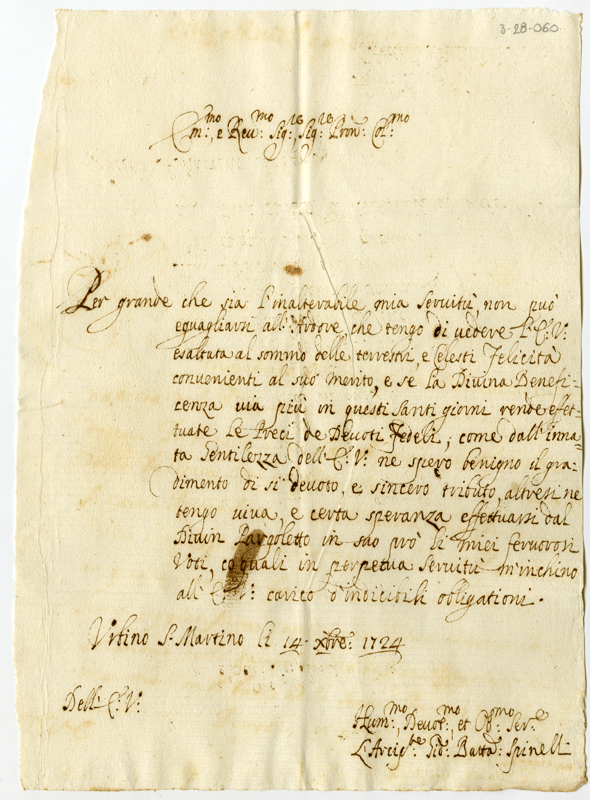 3-28-060
Em:mo, e Reu:mo Sig:re Sig:re Pròn: Col:mo
Per grande che sia l'inalterabile mia Seruitù, non può
eguagliarsi all'Ardore, che tengo di uedere l'E: V:
esaltata al sommo delle terrestri, e Celesti Felicità
convenienti al suo merito, e se la Divina Benefi-
cenza via più in questi Santi giorni rende effet-
tuate le Preci de Devoti Fedeli, come dall'inna-
ta Gentilezza dell'E: V: ne spero benigno il gra-
dimento di sì devoto, e sincero tributo, altresì ne
tengo viva, e certa speranza effettuarsi dal
Divin Pargoletto in suo prò li miei fervorosi
Voti, co quali in perpetua Seruitù m'inchino
all'E: V: carico d'indicibili obligationi.
Urbino S. Martino li 14 Xbre: 1724
Dell'E: V:
Hum:mo, Devot:mo, et Ob:mo Ser:e
L'Arcip:te Gio: Batta: Spinelli